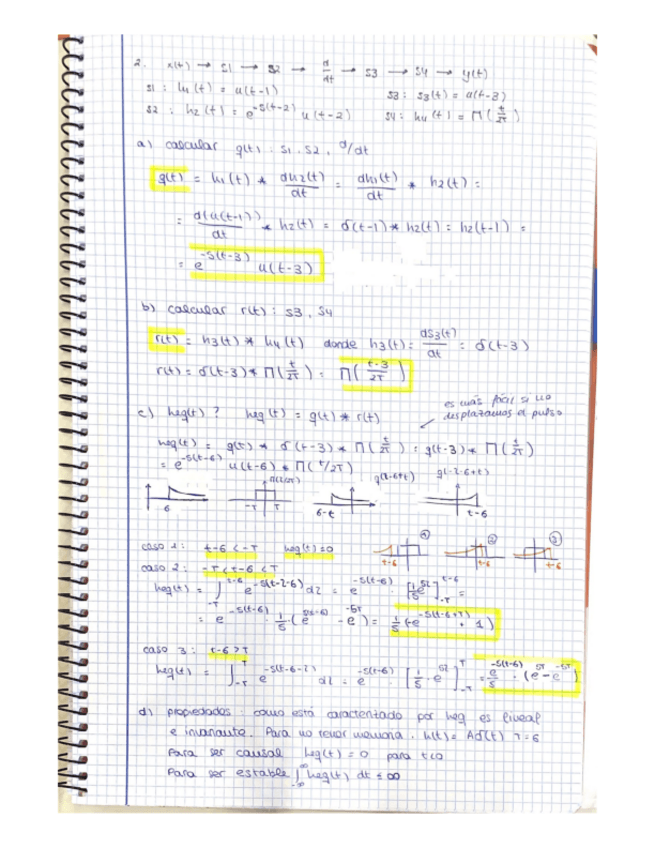 2. x(t) → S1 → S2 → d/dt → S3 → S4 → y(t)
S1 : h1(t) = u(t-1)   S3 : s3(t) = u(t-3)
S2 : h2(t) = e^-5(t-2) u(t-2)   S4 : h4(t) = Π(t/2T)
a) calcular g(t) : S1, S2, d/dt
g(t) = h1(t) * dh2(t)/dt = dh1(t)/dt * h2(t) =
= d(u(t-1))/dt * h2(t) = δ(t-1) * h2(t) = h2(t-1) =
= e^-5(t-3) u(t-3)
b) calcular r(t) : S3, S4
r(t) = h3(t) * h4(t) donde h3(t) = ds3(t)/dt = δ(t-3)
r(t) = δ(t-3) * Π(t/2T) = Π(t-3/2T)
es más fácil si no
desplazamos el pulso
c) heq(t) ? heq(t) = g(t) * r(t)
heq(t) = g(t) * δ(t-3) * Π(t/2T) = g(t-3) * Π(t/2T)
= e^-5(t-6) u(t-6) * Π(t/2T)
6   -T   T   6-t   t-6
caso 1 : t-6 < -T   heq(t)=0
① ② ③
t-6   t-6   t-6
caso 2 : -T < t-6 < T
heq(t) = ∫_-T^t-6 e^-5(t-z-6) dz = e^-5(t-6) · [1/5 e^5z]_-T^t-6 =
= e^-5(t-6) · 1/5 · (e^5(t-6) - e^-5T) = 1/5 (-e^-5(t-6+T) + 1)
caso 3 : t-6 > T
heq(t) = ∫_-T^T e^-5(t-6-z) dz = e^-5(t-6) · [1/5 · e^5z]_-T^T = e^-5(t-6)/5 · (e^5T - e^-5T)
d) propiedades : como está caracterizado por heq es lineal
e invariante. Para no tener memoria, h(t) = Aδ(t)
Para ser causal heq(t) = 0 para t<0
Para ser estable ∫_-∞^∞ heq(t) dt ≤ ∞